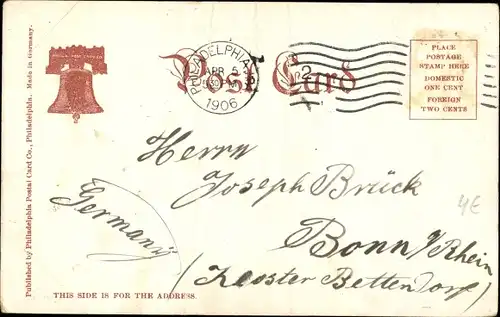 Post Card
PHILADELPHIA
APR 5
1906
2
PLACE
POSTAGE
STAMP HERE
DOMESTIC
ONE CENT
FOREIGN
TWO CENTS
Herrn
Joseph Brück
Bonn a/Rhein
(Kloster Bettendorf)
Germany
4€
Published by Philadelphia Postal Card Co., Philadelphia. Made in Germany.
THIS SIDE IS FOR THE ADDRESS.